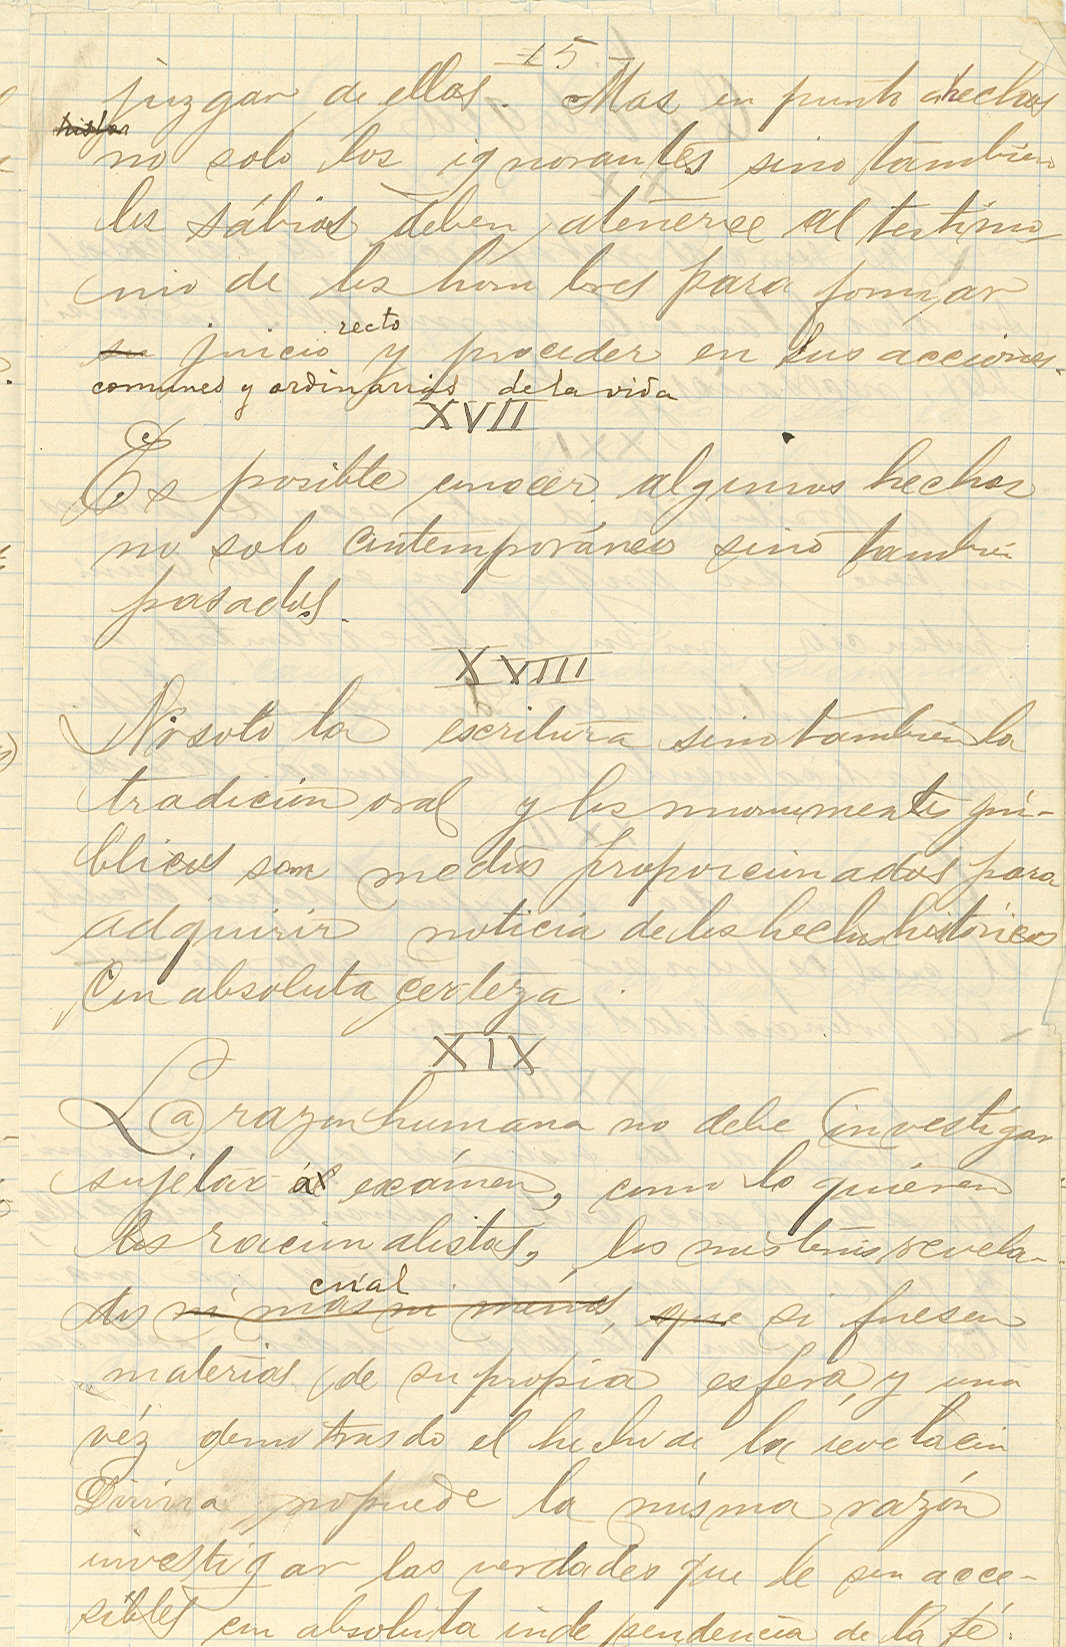 15
juzgar de ellas. Mas en punto a hechos
histor
no solo los ignorantes sino tambien
los sábios deben atenerse al testimo
nio de los hombres para formar
su juicio recto y proceder en sus acciones
comunes y ordinarias de la vida
XVII
Es posible conocer algunos hechos
no solo contemporáneos sino tambien
pasados.
XVIII
No solo la escritura sino tambien la
tradición oral y los monumentos pú-
blicos son medios proporcionados para
adquirir noticia de los hechos históricos
con absoluta certeza.
XIX
La razon humana no debe investigar
sujetar á exámen, como lo quieren
los racionalistas, los misterios revela-
dos ni mas ni menos, cual que si fuesen
materias de su propia esfera, y una
véz demostrado el hecho de la revelación
Divina, no puede la misma razón
investigar las verdades que le son acce-
sibles con absoluta independencia de la fé.